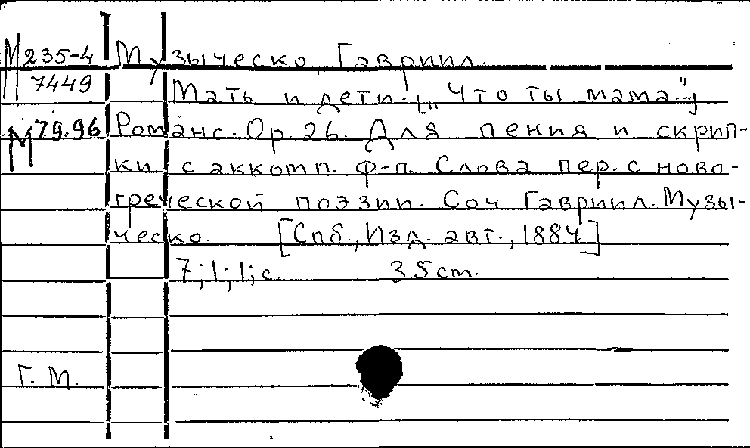 М 235-4 Музыческо, Гавриил.
7449 Мать и дети. („Что ты мама.")
М 79.96 Романс. Ор. 26. Для пения и скрип-
ки с аккомп. ф-п. Слова пер. с ново-
греческой поэзии. Соч. Гавриил. Музы-
ческо. [Спб., Изд. авт., 1884]
7; 1; 1; с. 35 cm.
Г. М.